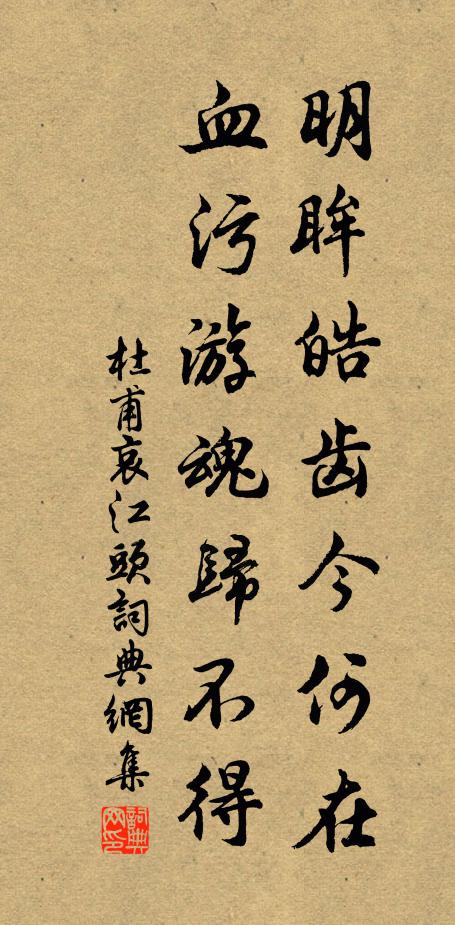 明眸皓齿今何在
血污游魂歸不得
杜甫哀江頭詞典網集
詞典网印